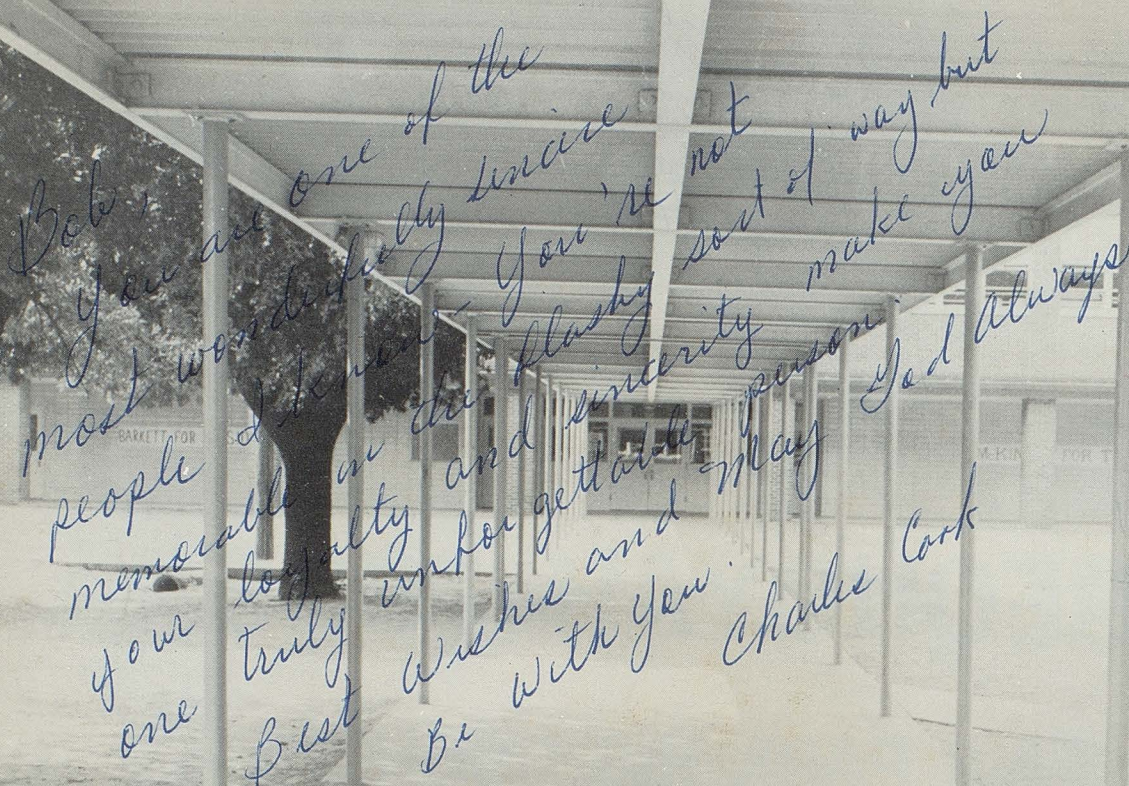 Bob,
You are one of the
most wonderfully sincire
people I know - You're not
memorable in the flashy sort of way but
your loyalty and sincerity make you
one truly unforgettable person.
Best Wishes and May God Always
Be with You.
Charles Cork
BARKETT FOR
M-KIN FOR T